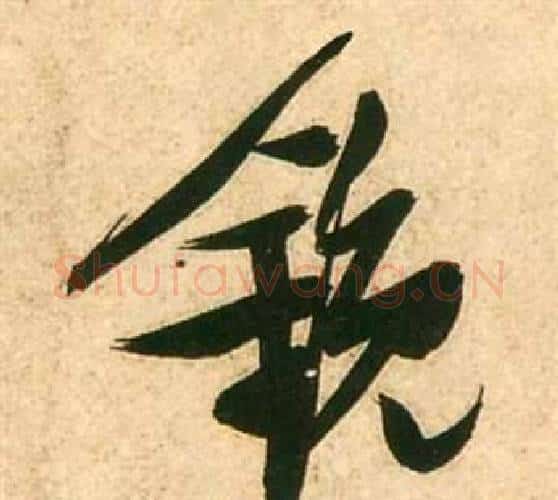 銳
Shufawang.CN